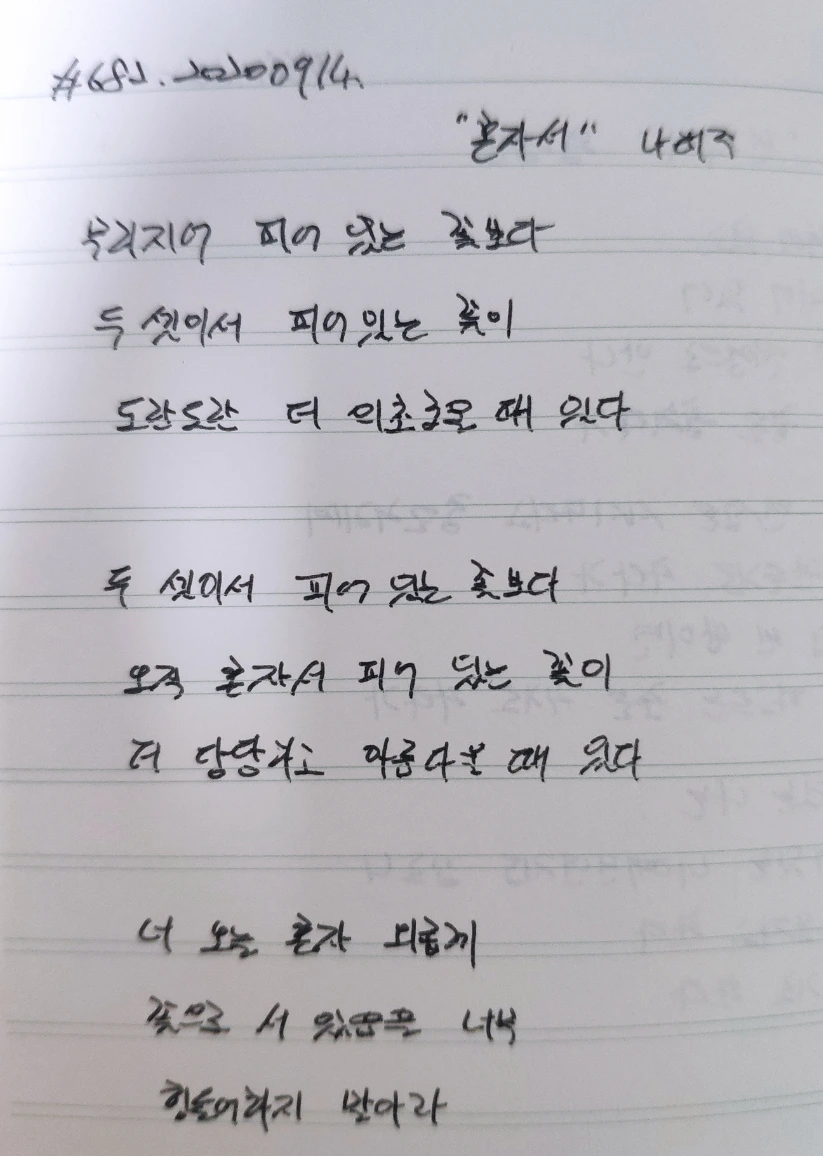 #682. 20200914.
"혼자서" 나태주
무리지어 피어 있는 꽃보다
두 셋이서 피어 있는 꽃이
도란도란 더 의초로울 때 있다
두 셋이서 피어 있는 꽃보다
오직 혼자서 피어 있는 꽃이
더 당당하고 아름다울 때 있다
너 오늘 혼자 외롭게
꽃으로 서 있음을 너무
힘들어하지 말아라